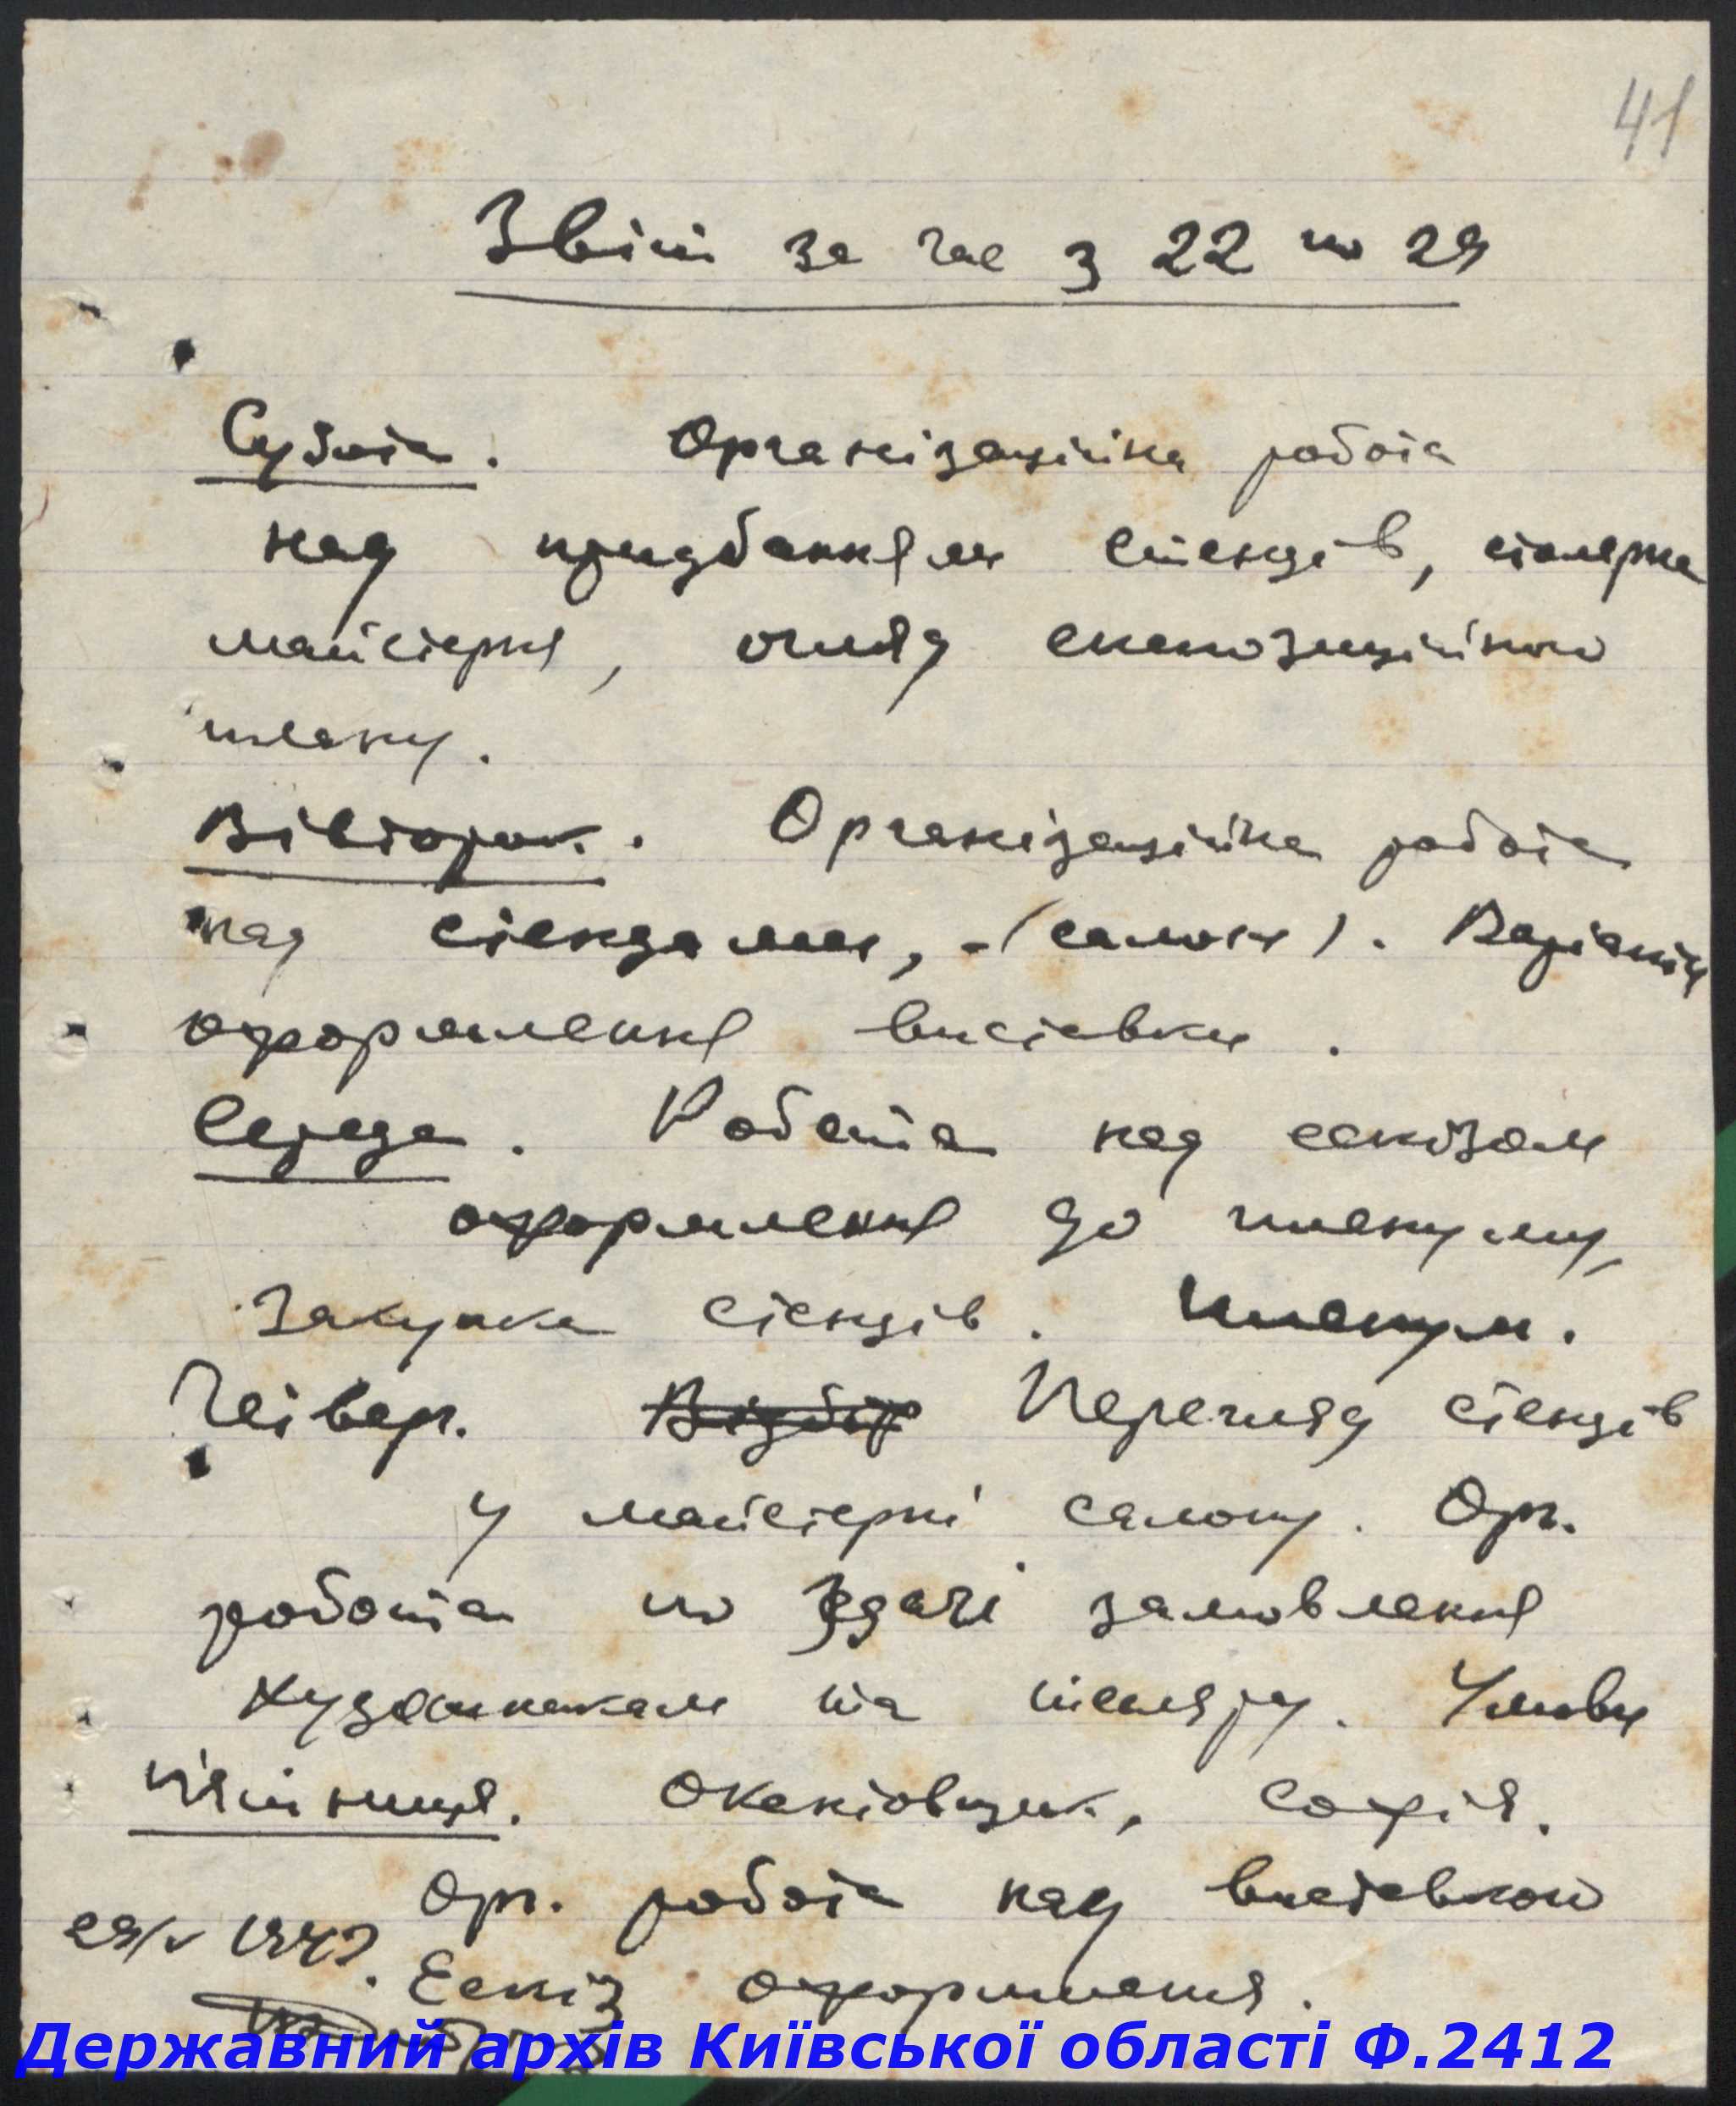 41
Звіт за час з 22 по 29
Субота. Організаційна робота
над придбанням стендів, столярна
майстерня, огляд експозиційного
плану.
Вівторок. Організаційна робота
над стендами, - (салон). Варіанти
оформлення виставки.
Середа. Робота над ескізом
оформлення до пленуму,
закупка стендів. Пленум.
Четвер. Відбір Перегляд стендів
у майстерні салону. Орг.
робота по здачі замовлення
художникам та столяру. Умови
П'ятниця. Оканtовщик, Софія.
Орг. робота над виставкою
29/V 1943. Ескіз оформлення.
Державний архів Київської області Ф.2412